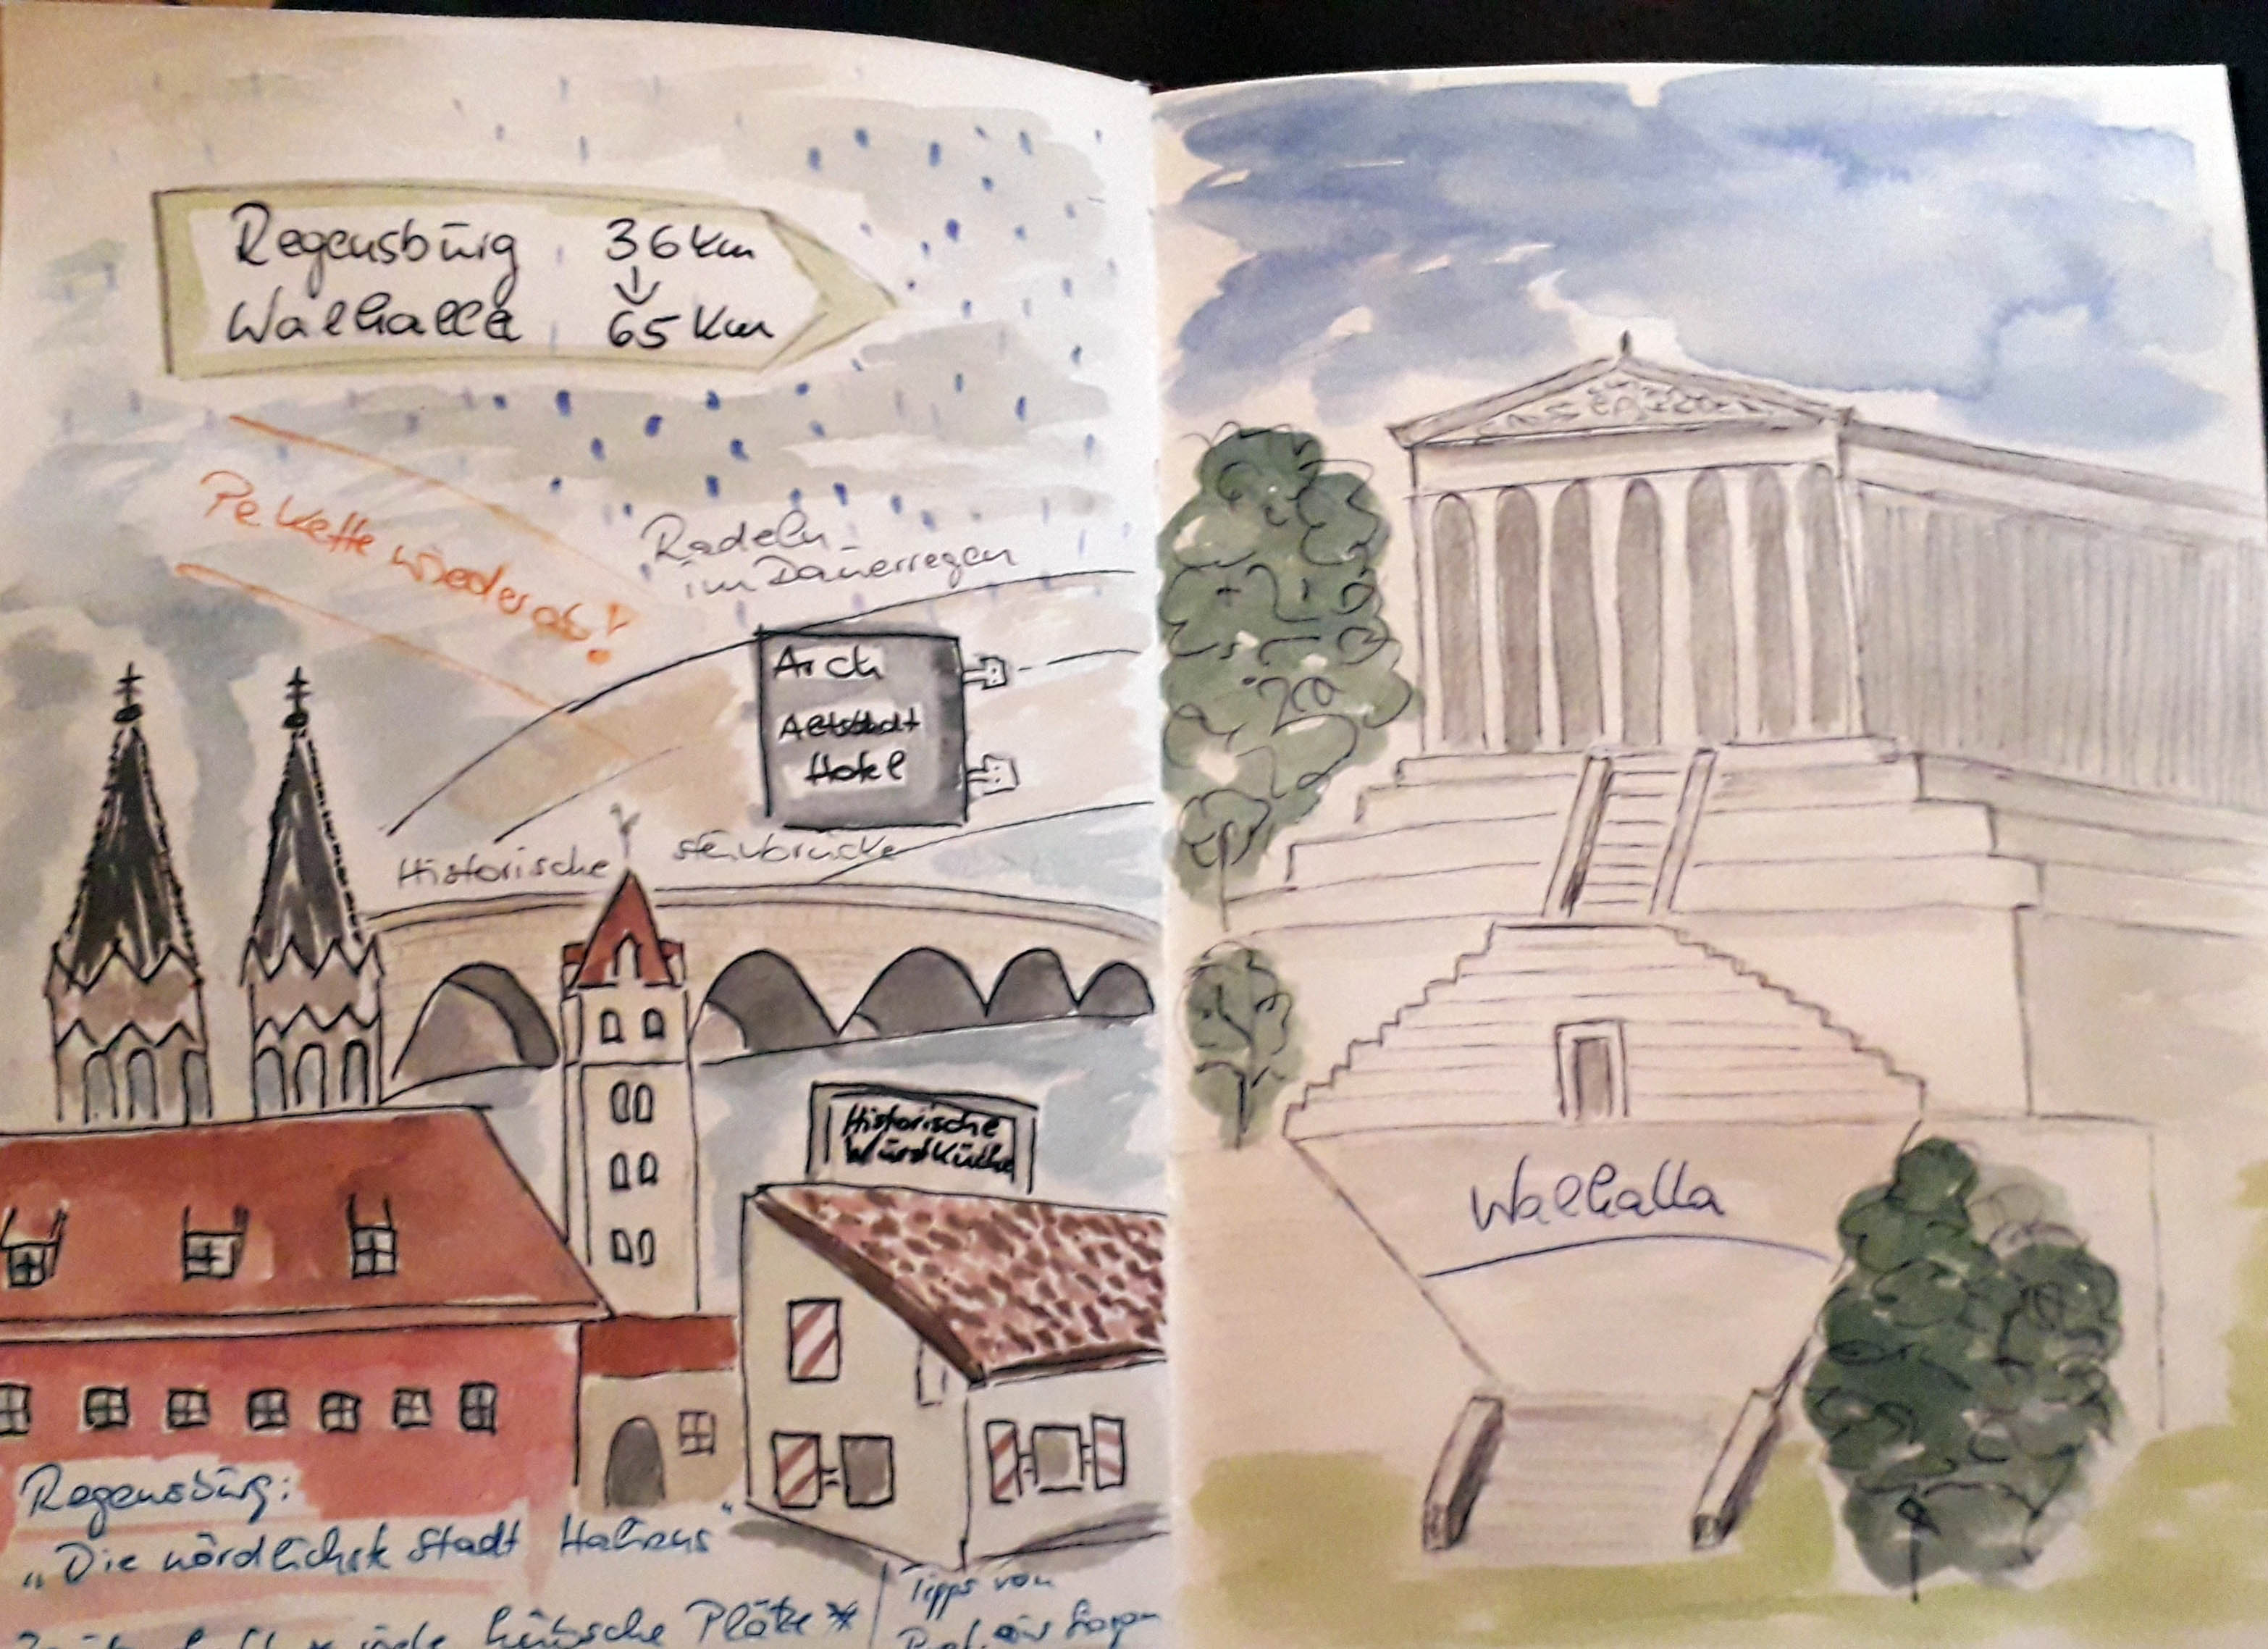 Regensburg 36 km
Walhalla 65 km
Pe Kette wieder ab!
Radeln
im Dauerregen
Arch
Altstadt
Hotel
Historische Steinbrücke
Historische
Wurstküche
Walhalla
Regensburg:
„Die nördlichste Stadt Italiens"
viele hübsche Plätze *
Tipps von